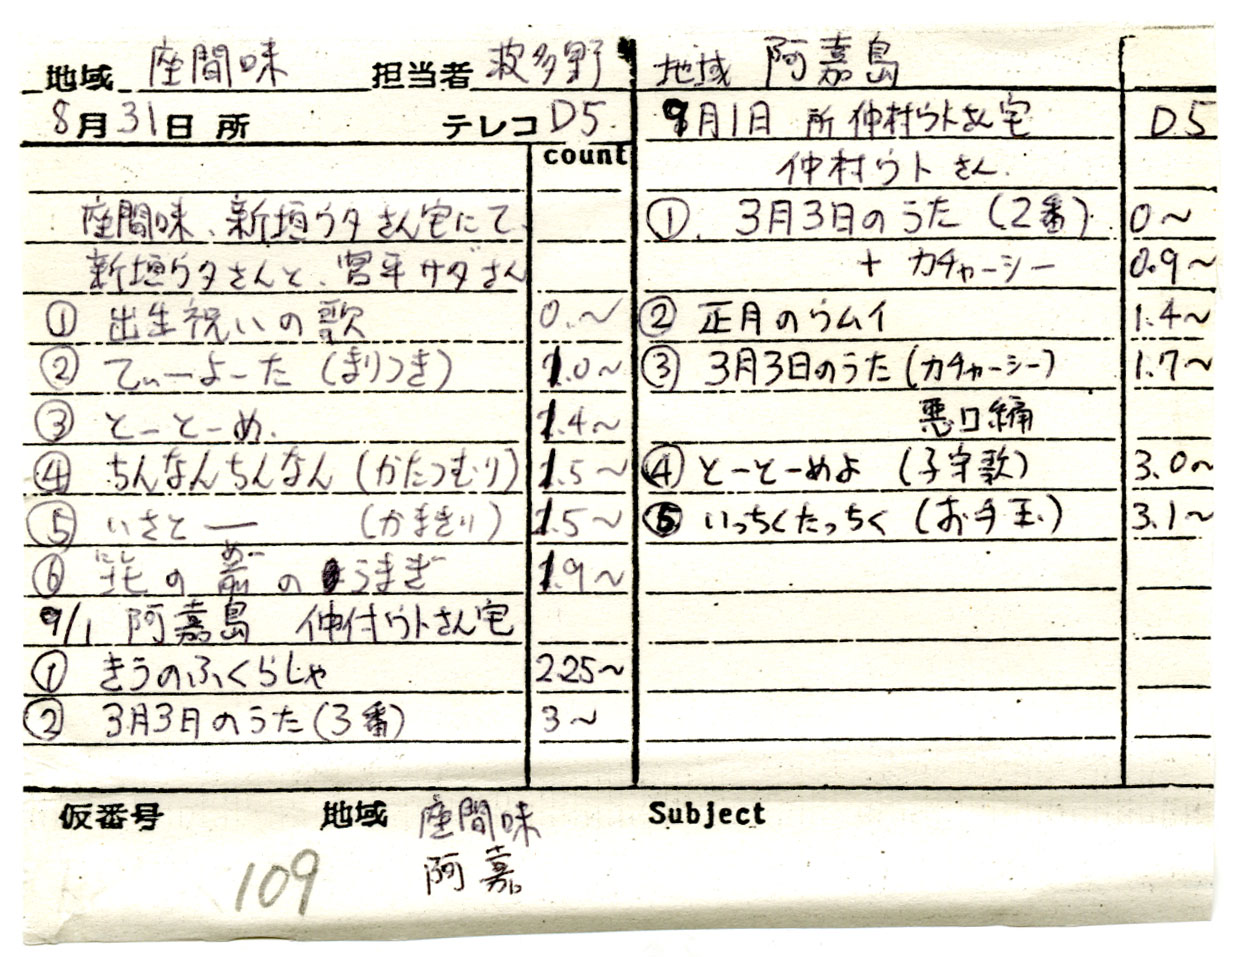 地域 座間味 担当者 波多野
8月31日 所 テレコ D5
count
座間味、新垣ウタさん宅にて、
新垣ウタさんと、宮平サダさん
① 出生祝いの歌 0.~
② てぃーよーた (まりつき) 1.0~
③ とーとーめ. 1.4~
④ ちんなんちんなん (かたつむり) 1.5~
⑤ いさとー (かまきり) 1.5~
⑥ の前のうまぎー 1.9~
9/1 阿嘉島 仲付ウトさん宅
① きうのふくらしゃ 2.25~
② 3月3日のうた (3番) 3~
地域 阿嘉島
9月1日 所 仲村ウトさん宅 D5
仲村ウトさん.
①. 3月3日のうた (2番) 0~
+ カチャーシー 0.9~
② 正月のウムイ 1.4~
③ 3月3日のうた (カチャーシー) 1.7~
悪口編
④ とーとーめよ (子守歌) 3.0~
⑤ いっちくたっちく (お手玉) 3.1~
仮番号 109
地域 座間味
阿嘉
Subject